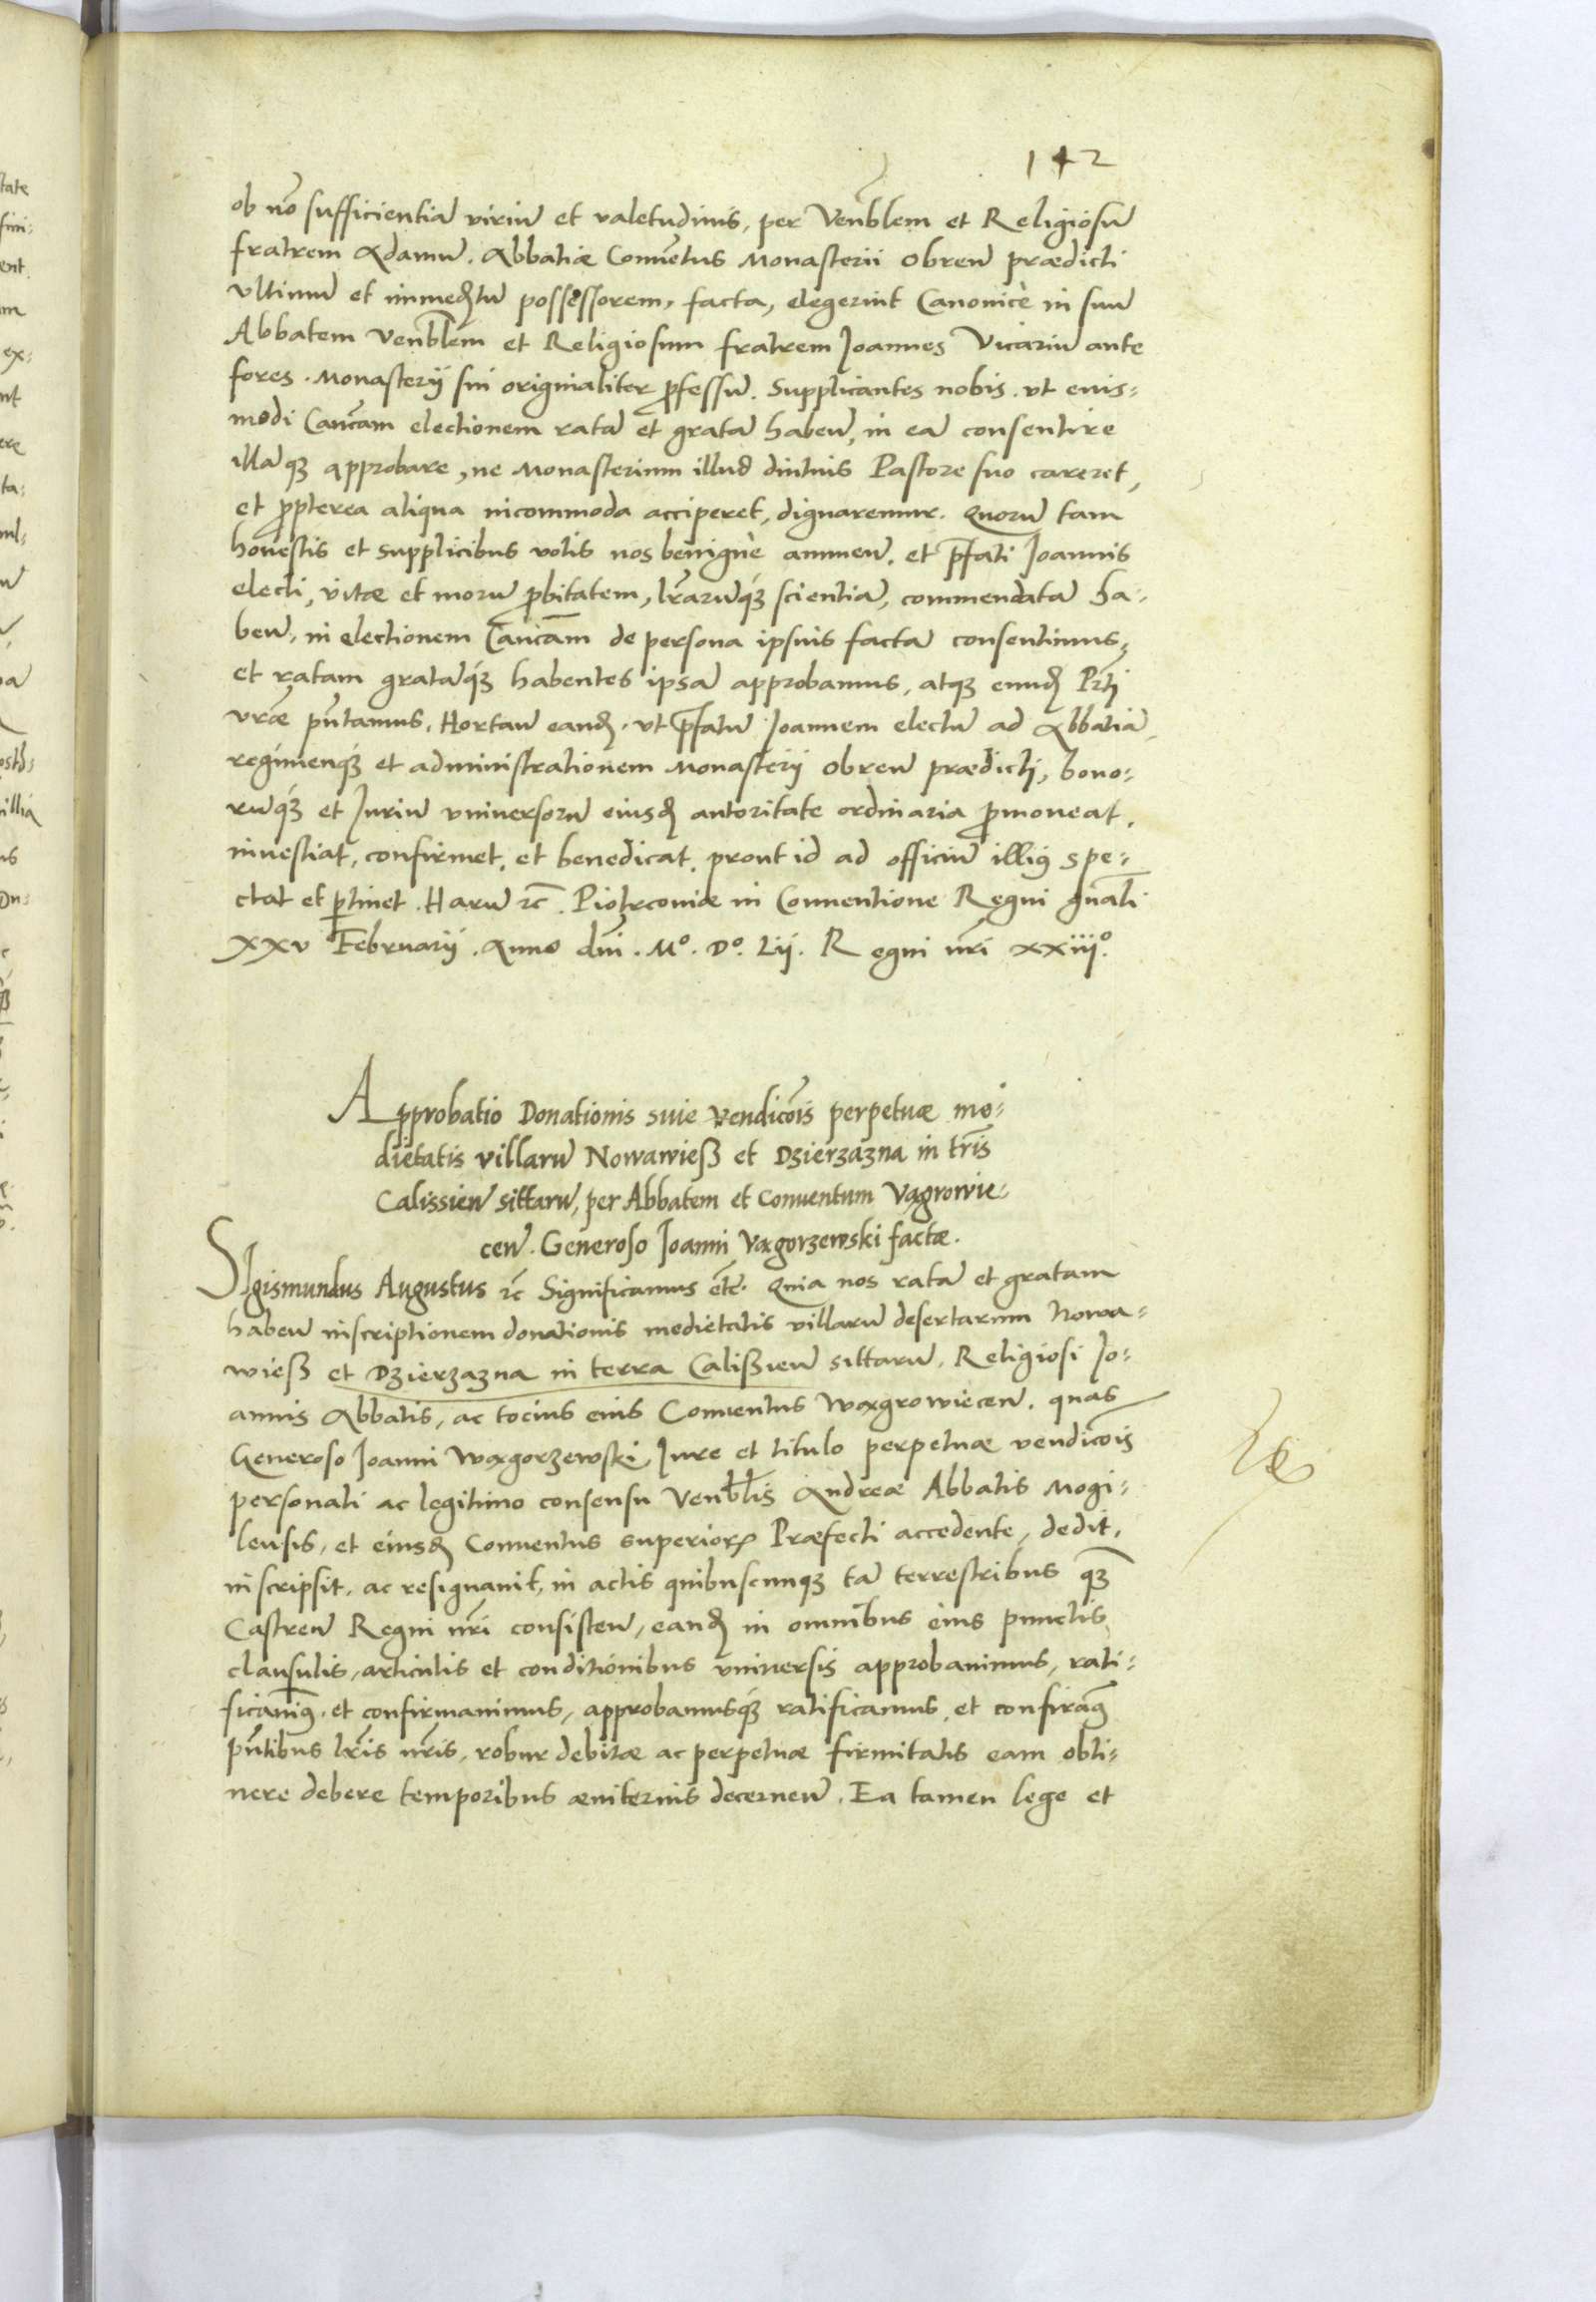 142
ob nõ sufficientiã viriũ et valetudinis, per Venẽblem et Religiosũ
fratrem Adamũ. Abbatiæ Convẽtus Monasterii Obreñ prædicti
vltimũ et immedtũ possessorem, facta, elegerint Canonicè in suũ
Abbatem Venblẽm et Religiosum fratrem Joannes Vicariũ ante
fores. Monasterij sui originaliter ꝓfessũ. Supplicantes nobis. vt eius=
modi Cañcam electionem ratã et gratã habeñ, in eã consentire
illãqꝫ approbare, ne Monasterium illud diutius Pastore suo careret,
et ꝓpterea aliqua incommoda acciperet, dignaremur. Quorũ tam
honestis et supplicibus votis nos benignè annueñ. et p̃fati Joannis
electi, vitæ et morũ ꝓbitatem, lr̃arũqꝫ scientiã, commendatã ha=
beñ, in electionem Cañcam de persona ipsius factã consentimus,
et ratam gratãqꝫ habentes ipsã approbamus, atqꝫ eund Pr̃ti
vr̃æ pñtamus. Hortañ eand. vt p̃fatũ Joannem electũ ad Abbatiã,
regimenqꝫ et administrationem Monasterij Obreñ prædicti, bono=
rũqꝫ et Juriũ vniversorũ eiusd autoritate ordinaria ꝓmoveat,
investiat, confirmet, et benedicat. prout id ad officiũ illiꝰ spe=
ctat et ꝑtinet. Harũ ꝛc̃. Piotrcoviæ in Conventione Regni gñali
XXv Februarij. Anno dñi. Mº. Dº. Lij. Regni nr̃i xxiijº.
Approbatio Donationis siue vendicõis perpetuæ me=
dietatis villarũ Nowawieß et Dzierzazna in tr̃is
Calissieñ sittarũ, per Abbatem et Conuentum Vagrowie=
ceñ. Generoso Joanni Vagorzewski factæ.
SIgismundus Augustus ꝛc̃ Significamus etc̃. Quia nos ratã et gratam
habeñ inscriptionem donationis medietatis villarũ desertarum Nowa=
wieß et Dzierzazna in terra Calißieñ sittarũ, Religiosi Jo=
annis Abbatis, ac tocius eius Conventus Wągrowieceñ. quas
Generoso Joanni Wągorzewski Jure et titulo perpetuæ vendicõis
personali ac legitimo consensu Venbl̃is Andreæ Abbatis Mogi=
lensis, et eiusd Conventus superioꝝ Præfecti accedente, dedit,
inscripsit, ac resignavit, in actis quibuscunqꝫ tã terrestribus qꝫ̃
Castreñ Regni nr̃i consisteñ, eand in omnibus eius punctis
clausulis, articulis et conditionibus vniversis approbavimus, rati=
ficavimꝰ. et confirmavimus, approbamusqꝫ ratificamus et confirãmꝰ
pñtibus lr̃is nr̃is, robur debitæ ac perpetuæ firmitatis eam obti=
nere debere temporibus æviternis decerneñ. Ea tamen lege et